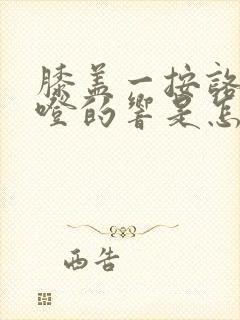 膝盖一按咯
噔的响是怎
西告